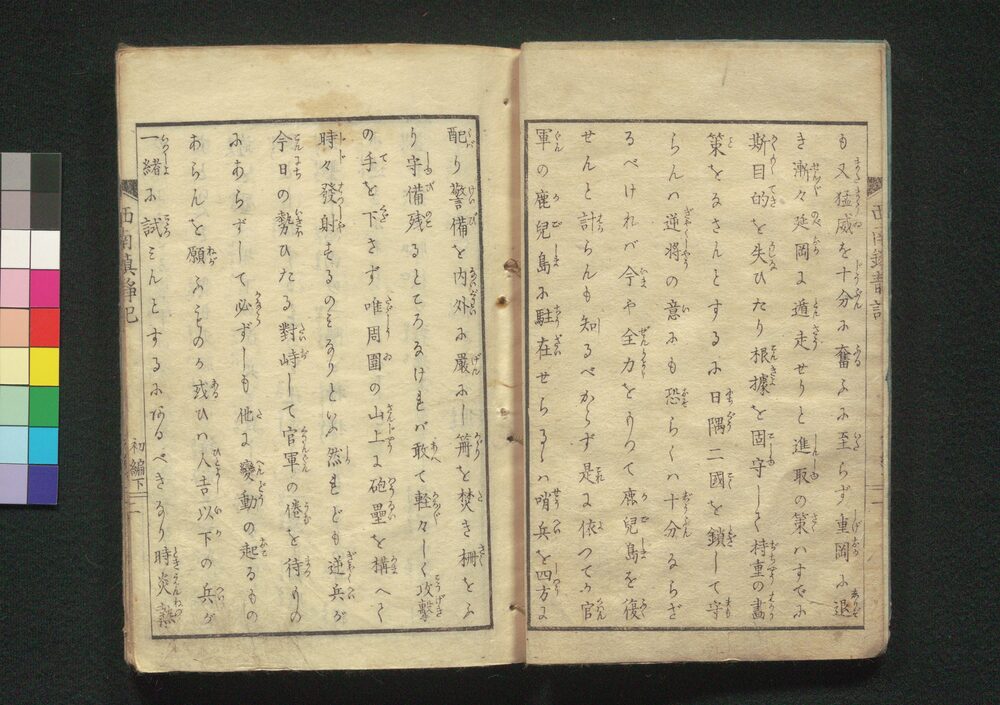 も又猛威を十分に奮ふに至らず重岡に退
き漸々延岡に遁走せりと進取の策ハすでに
斯目的を失ひたり根據を固守して持重の畫
策をなさんとするに日隅二國を鎖して守
らんハ逆將の意にも恐らくハ十分ならざ
るべけれバ今や全力をもつて鹿兒島を復
せんと計らんも知るべからず是に依つて官
軍の鹿兒島に駐在せらるゝハ哨兵を四方に
配り警備を内外に嚴にし篝を焚き柵をふ
り守備殘るところなけれバ敢て輕々しく攻撃
の手を下さず唯周圍の山上に砲壘を構へて
時々發射するのみなりといふ然れども逆兵が
今日の勢ひたる對峙して官軍の倦を待もの
にあらずして必ずしも他に變動の起るもの
あらんを願ふものか或ひハ人吉以下の兵が
一緒に試みんとするにあるべきなり時炎熱
西南鎮靜記
初編下